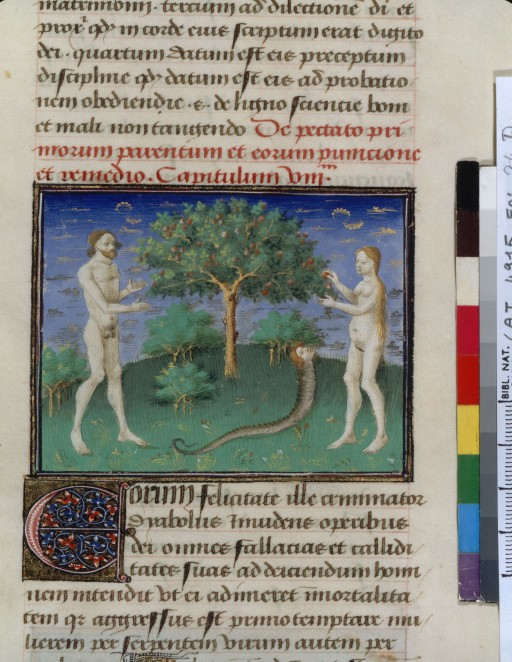 matrimonii. tercium ad dilectione di et
proxi qd in corde eius scriptum erat digito
dei. quartum datum est eis preceptum
discipline qd datum est eis ad probatio
nem obediendie .s. de ligno sciencie boni
et mali non tangendo De peccato pri
morum parentum et eorum punicione
et remedio. Capitulum viii.
Eorum felicitate ille criminator
dyabolus invidens operibus
dei omnes fallacias et callidi
tates suas ad deciendum homi
nem intendit vt ei adimeret immortalita
tem qr aggressus est primo temptare mu
lierem per serpentem virum autem per
BIBL. NAT. LAT 4915 Fol.